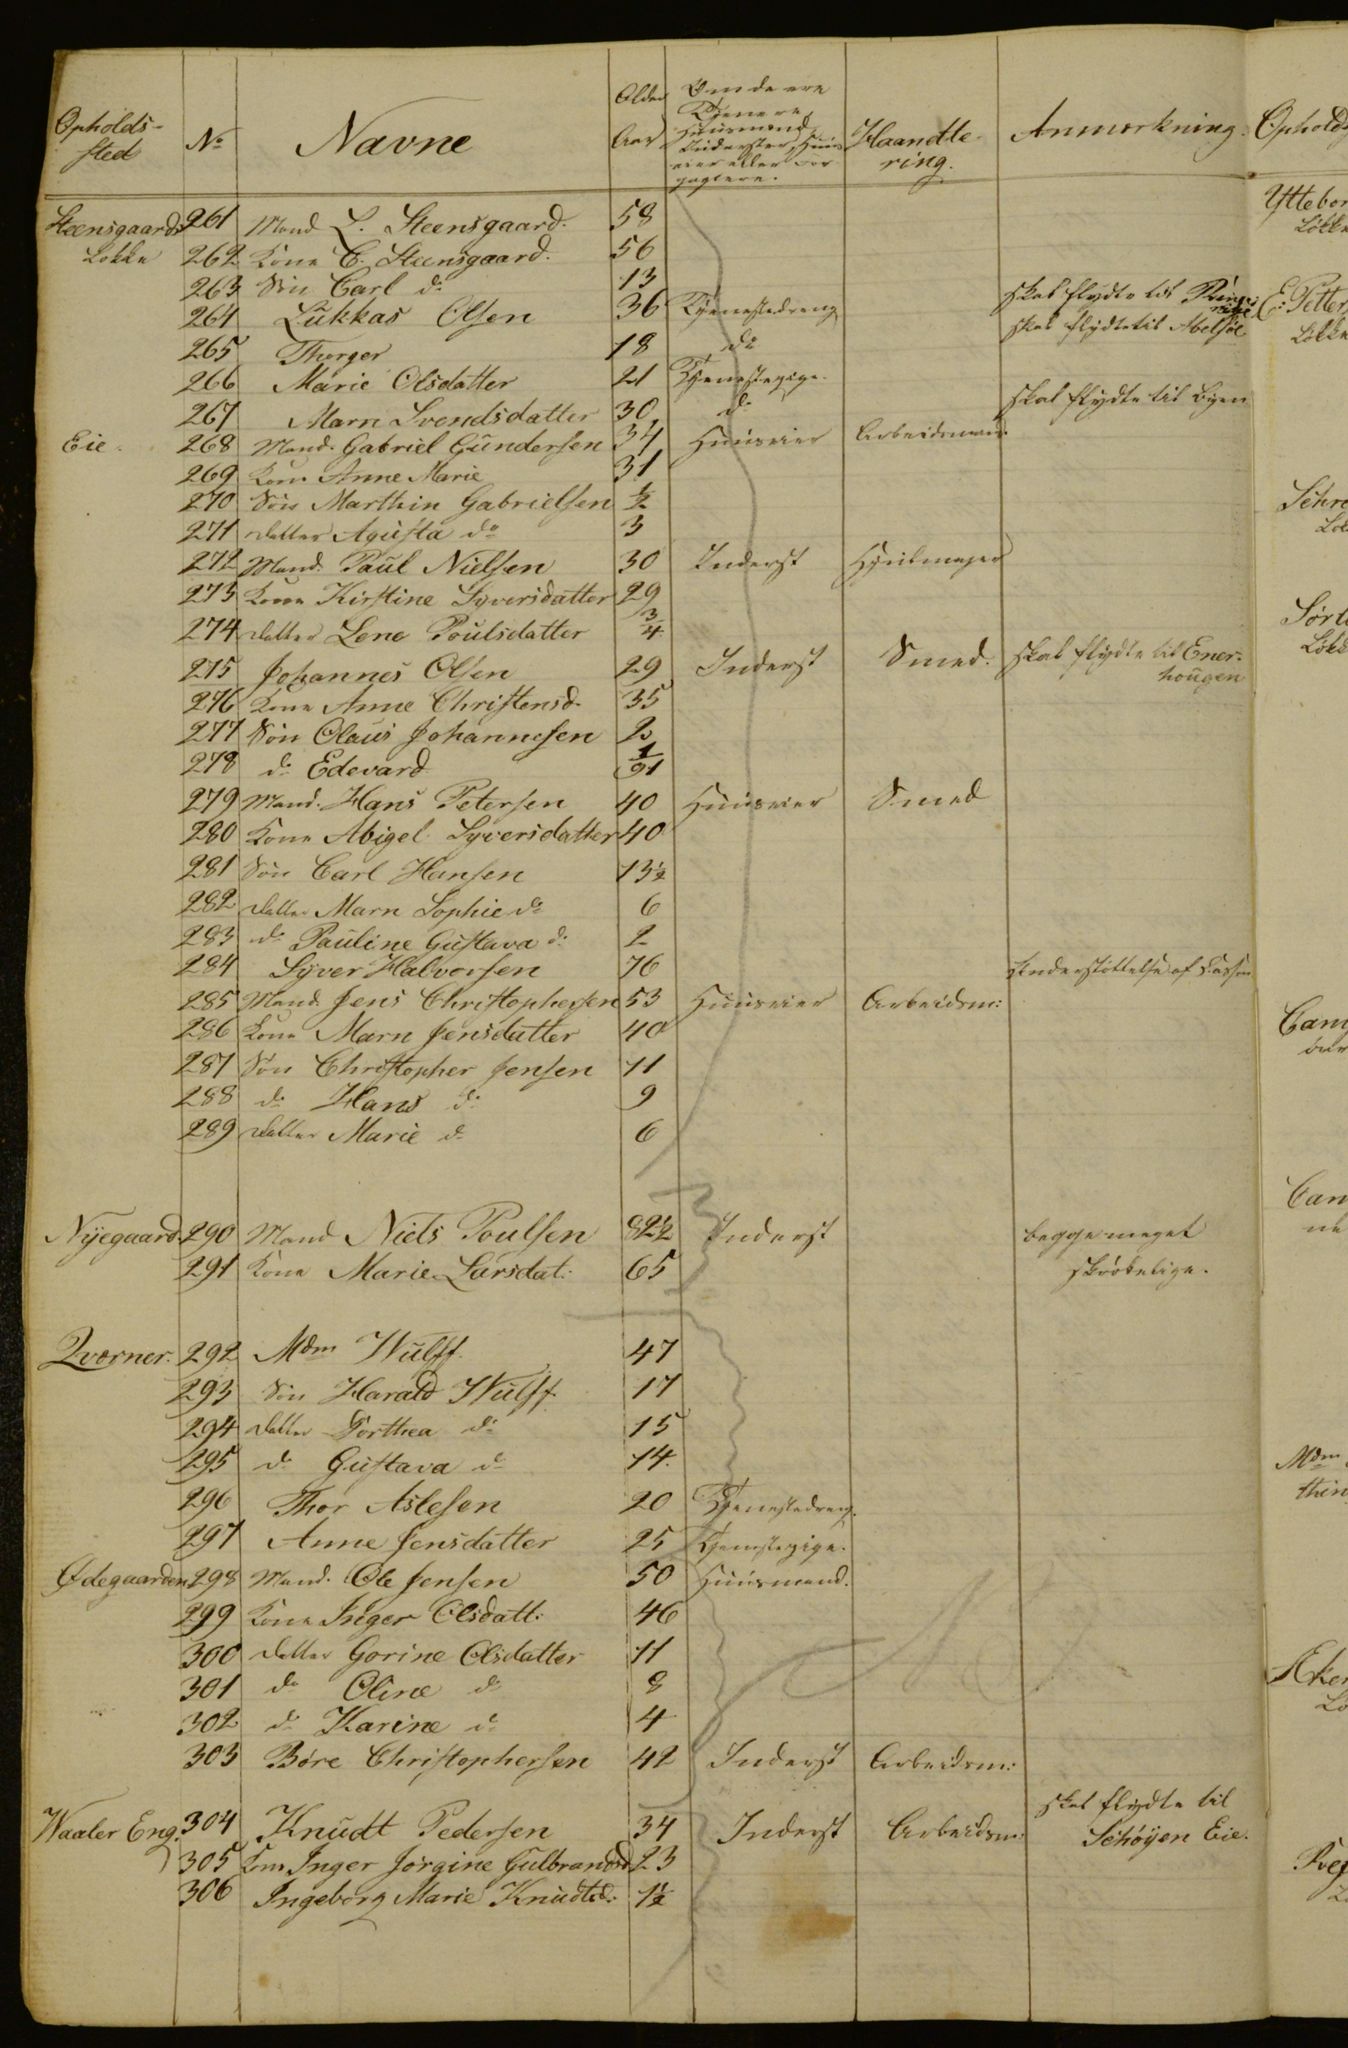 Opholds-sted | No | Navne | Alder Aar | Om de ere Tjenere Huusmænd Inderster, Huuseier eller For pagtere. | Haandte-ring. | Anmærkning.
Steensgaards 261 Mand L. Steensgaard. 58
Løkke 262 Kone C. Steensgaard. 56
263 Søn Carl do 13
264 Lukkas Olsen 36 Tjenestedreng skal flydte til Ringerige
265 Thorger 18 do skal flydte til Abelsöe
266 Marie Olsdatter 21 Tjenestepige.
267 Marn Svendsdatter 30 do skal flydte til Byen
Eie. 268 Mand. Gabriel Gundersen 34 Huuseier Arbeidsmand.
269 Kone Anne Marie 31
270 Søn Marthin Gabrielsen ½
271 datter Agusta do 3
272 Mand. Paul Nielsen 30 Inderst Hjulmager
273 Kone Kirstine Syversdatter 29
274 datter Lene Poulsdatter ¾
275 Johannes Olsen 29 Inderst Smed. skal flydte til Ener-
hougen
276 Kone Anne Christensd. 35
277 Søn Olaus Johannesen 2
278 do Edevard
279 Mand. Hans Petersen 40 Huuseier Smed
280 Kone Abigel Syversdatter 40
281 Søn Carl Hansen 13½
282 datter Marn Sophie do 6
283 do Pauline Gustava do 2
284 Syver Halvorsen 76 Understöttelse af Kassen
285 Mand Jens Christophersen 53 Huuseier Arbeidsm:
286 Kone Marn Jensdatter 40
287 Søn Christopher Jensen 11
288 do Hans do 9
289 datter Marie do 6
Nÿegaard. 290 Mand Niels Poulsen 82½ Inderst begge meget
291 Kone Marie Larsdat: 65 skrøbelige.
Qværner. 292 Mdm Wulff. 47
293 Søn Harald Wulff. 17
294 datter Dorthea do 15
295 do Gustava do 14.
296 Thor Aslesen 20 Tjenestedreng.
297 Anne Jensdatter 25 Tjenestepige.
Ødegaarden 298 Mand. Ole Jensen 50 Huusmand.
299 Kone Inger Olsdatt: 46
300 datter Gorine Olsdatter 11
301 do Oline do 8
302 do Karine do 4
303 Böre Christophersen 42 Inderst Arbeidsm:
Waaler Eng. 304 Knudt Pedersen 34 Inderst Arbeidsm: skal flydte til
Schøyen Eie.
305 Kone Inger Jorgine Gulbrandsd 23
306 Ingeborg Marie Knudtsd: 1½
Ophold
Ytter
Løkke
E: Petter
Løkke
Schre
Sört
Løkk
Cam
Cam
Mdm
thin
Aker